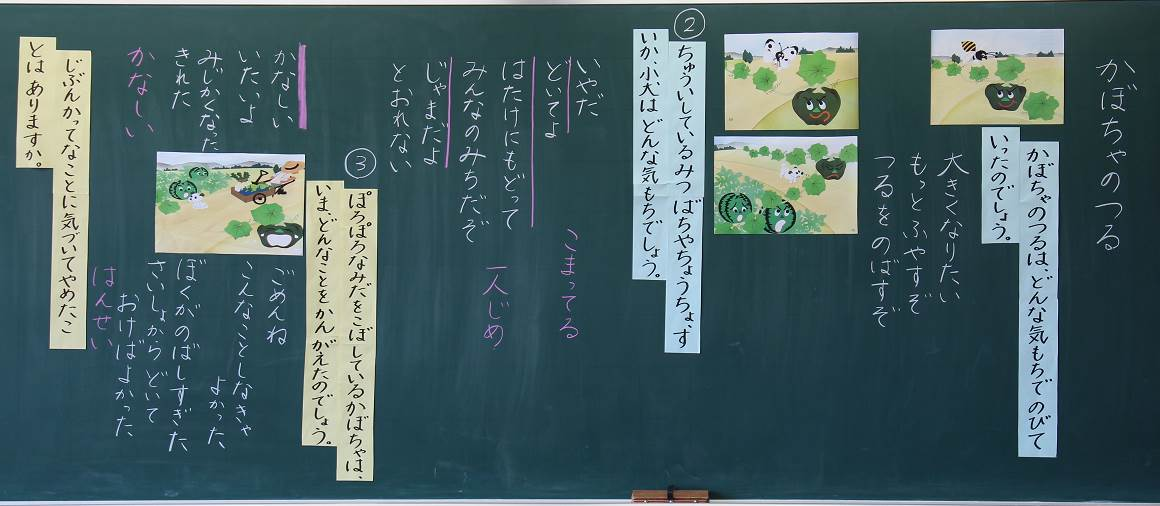 かぼちゃのつる
かぼちゃのつるは、どんな気もちでのびて
いったのでしょう。
大きくなりたい
もっとふやすぞ
つるをのばすぞ
②
ちゅういしているみつばちやちょうちょ、す
いか、小犬は どんな気もちでしょう。
いやだ
どいてよ
はたけにもどって
みんなのみちだぞ
じゃまだよ
とおれない
こまってる
一人じめ
③
ぽろぽろなみだをこぼしているかぼちゃは、
いま、どんなことをかんがえたのでしょう。
かなしい
いたいよ
みじかくなった
きれた
かなしい
ごめんね
こんなことしなきゃ
よかった
ぼくがのばしすぎた
さいしょから どいて
おけばよかった
はんせい
じぶんかってなことに気づいてやめたこ
とは ありますか。